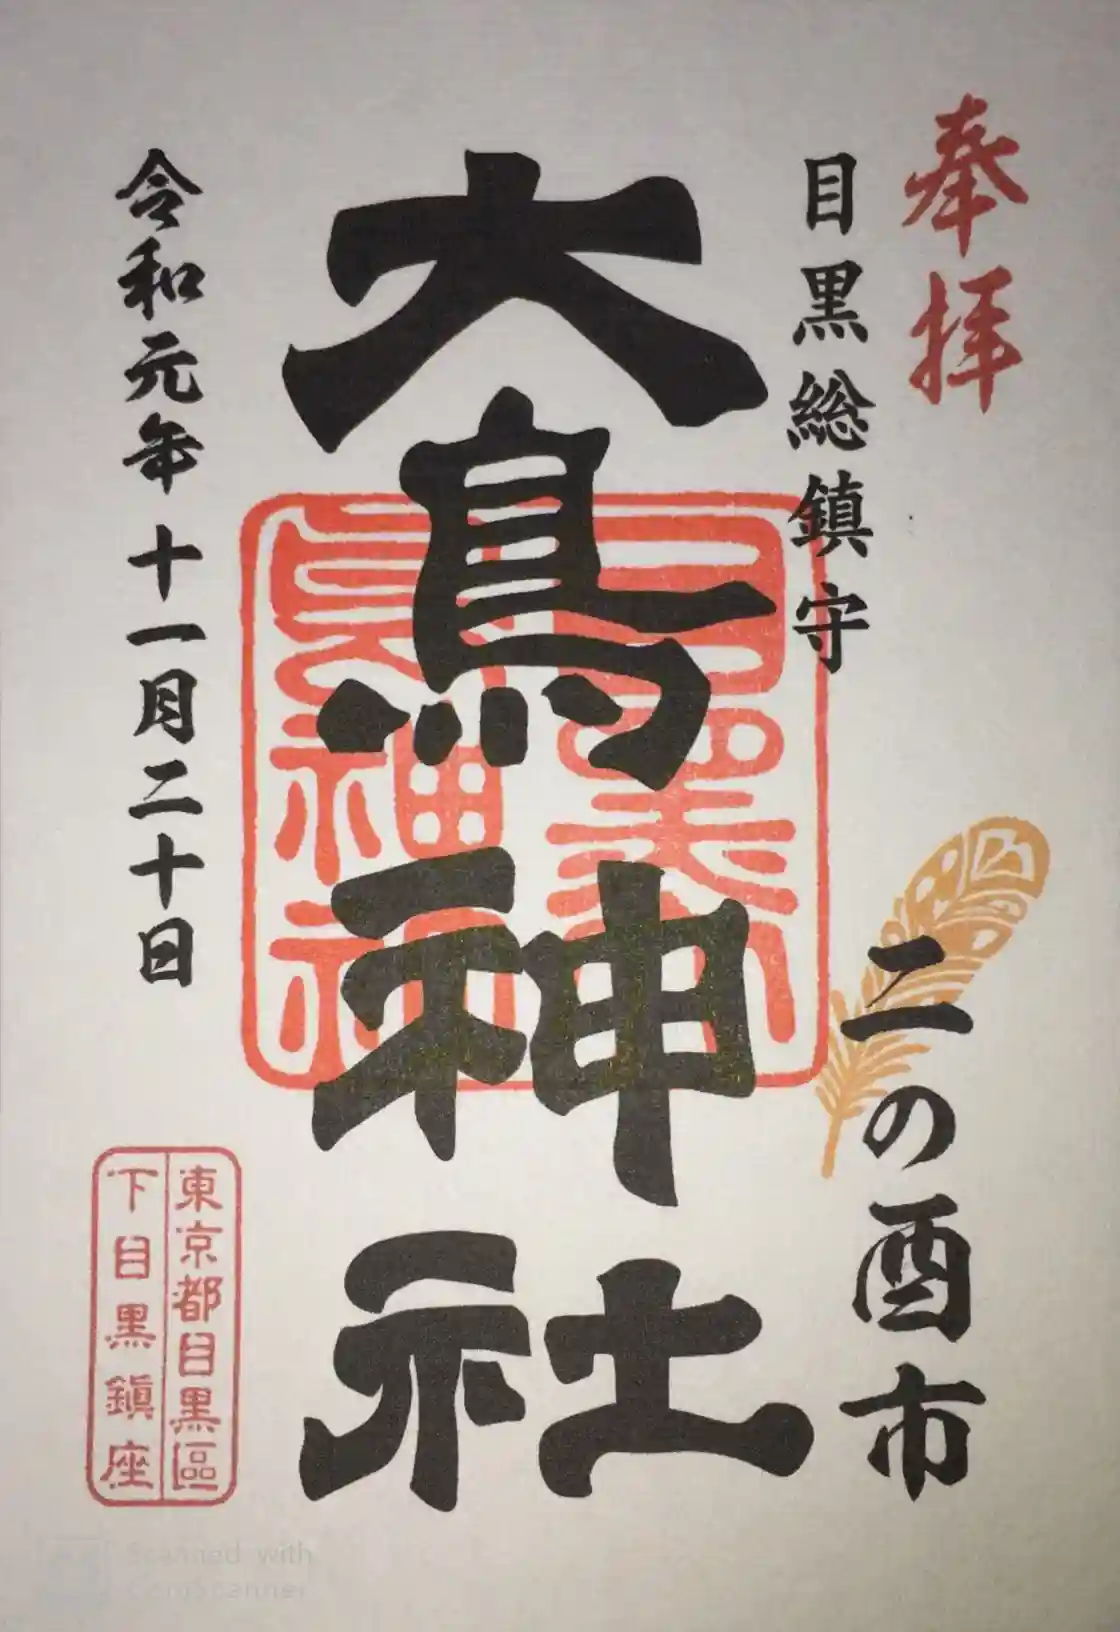 奉拝
目黒総鎮守
二の酉市
大鳥神社
令和元年十一月二十日
東京都目黒區
下目黒鎮座
Scanned with
CamScanner